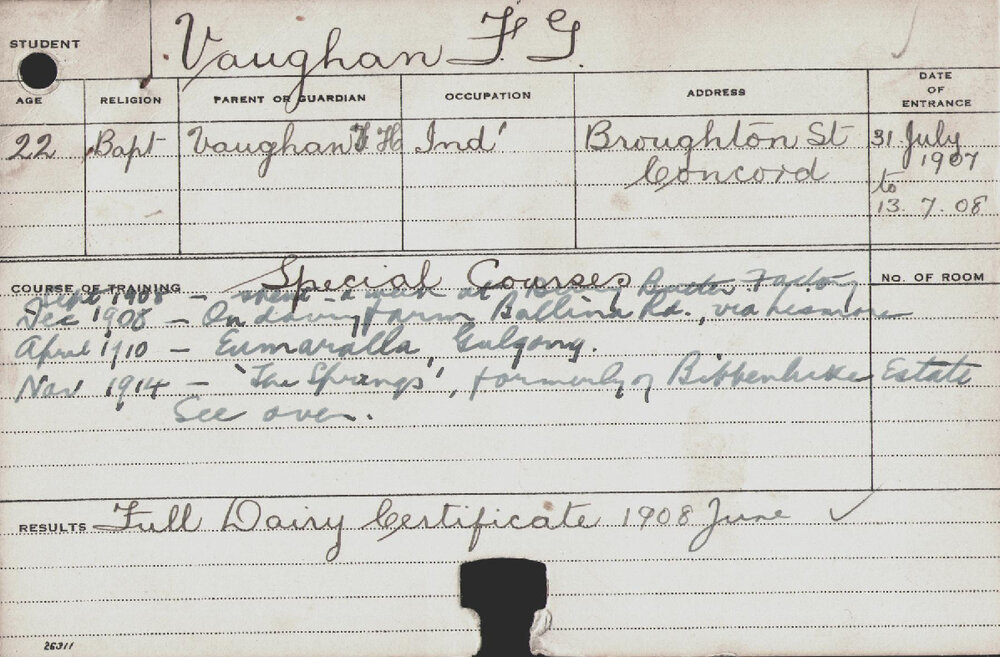 STUDENT Vaughan F. G.
AGE RELIGION PARENT OR GUARDIAN OCCUPATION ADDRESS DATE OF ENTRANCE
22 Bapt Vaughan F H Ind' Broughton St 31 July
Concord 1907
to
13. 7. 08
COURSE OF TRAINING Special Courses NO. OF ROOM
Sept 1908 - spent a week at Butter Factory
Dec 1908 - On dairy farm Ballina Rd., via Lismore
April 1910 - Eumaralla, Gulgong.
Nov 1914 - 'The Springs', formerly of Estate
See over.
RESULTS Full Dairy Certificate 1908 June
26311